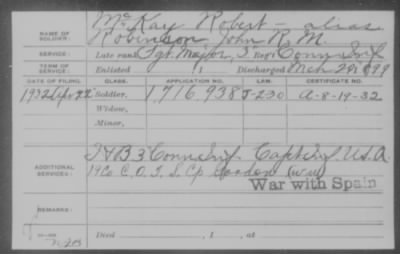 NAME OF SOLDIER: McKay Robert – alias
Robinson, John R. M.
SERVICE: Late rank, Sgt. Major, 3" Regt. Conn. Inf
TERM OF SERVICE: Enlisted , 1 Discharged Mch 20, 1899
DATE OF FILING. CLASS. APPLICATION NO. CERTIFICATE NO.
1932 Apr 22 Soldier, 1716,938 J-230 A-8-19-32
Widow,
Minor,
ADDITIONAL SERVICES: & B 3" Conn. Inf. Capt Inf U.S.A.
19 Co C.O.T.S. Cp Gordon (WW)
War with Spain
REMARKS:
Died , 1 , at